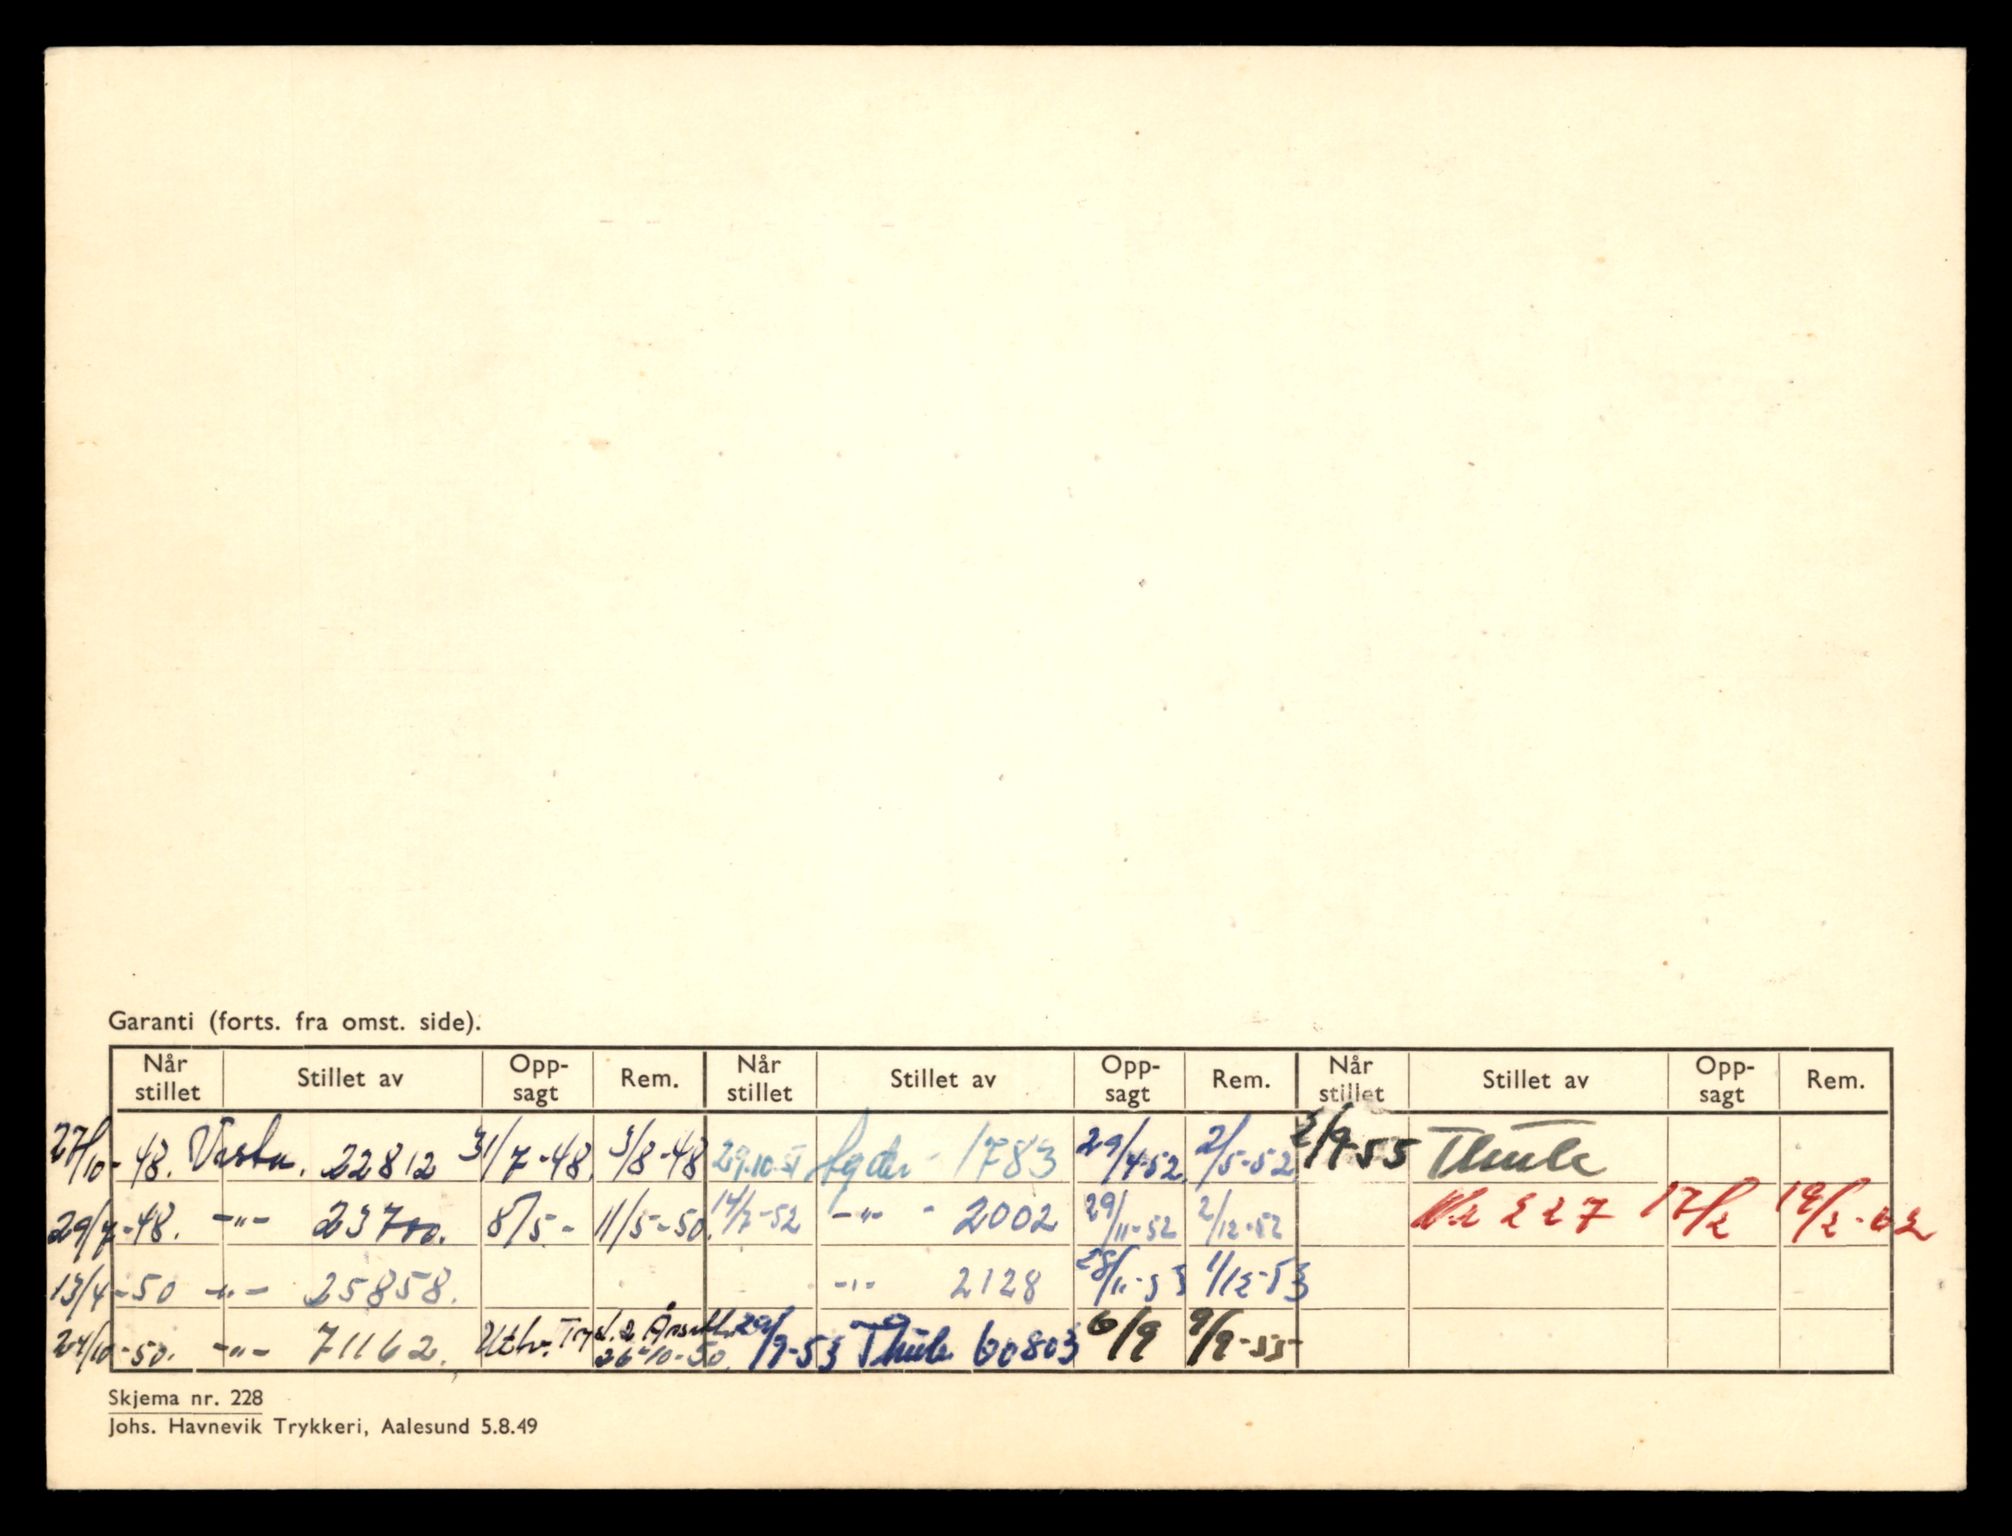 Garanti (forts. fra omst. side).
Når stillet | Stillet av | Opp-sagt | Rem. | Når stillet | Stillet av | Opp-sagt | Rem. | Når stillet | Stillet av | Opp-sagt | Rem.
27/10-48. 22812 31/7-48. 3/8-48 29.10.51 Agder - 1783 29/4-52. 2/5-52 2/9-55 Thule
29/7-48. -"- 23700. 8/5- 11/5-50. 14/7-52 -"- - 2002 29/11-52 2/12-52 227 17/2 19/2-62
13/4-50 -"- 25858. -"- 2128 28/11-53 1/12-53
24/10-50. -"- 71162. 26-10-50. 29/9-53 Thule 60803 6/9 9/9-55-
Skjema nr. 228
Johs. Havnevik Trykkeri, Aalesund 5.8.49